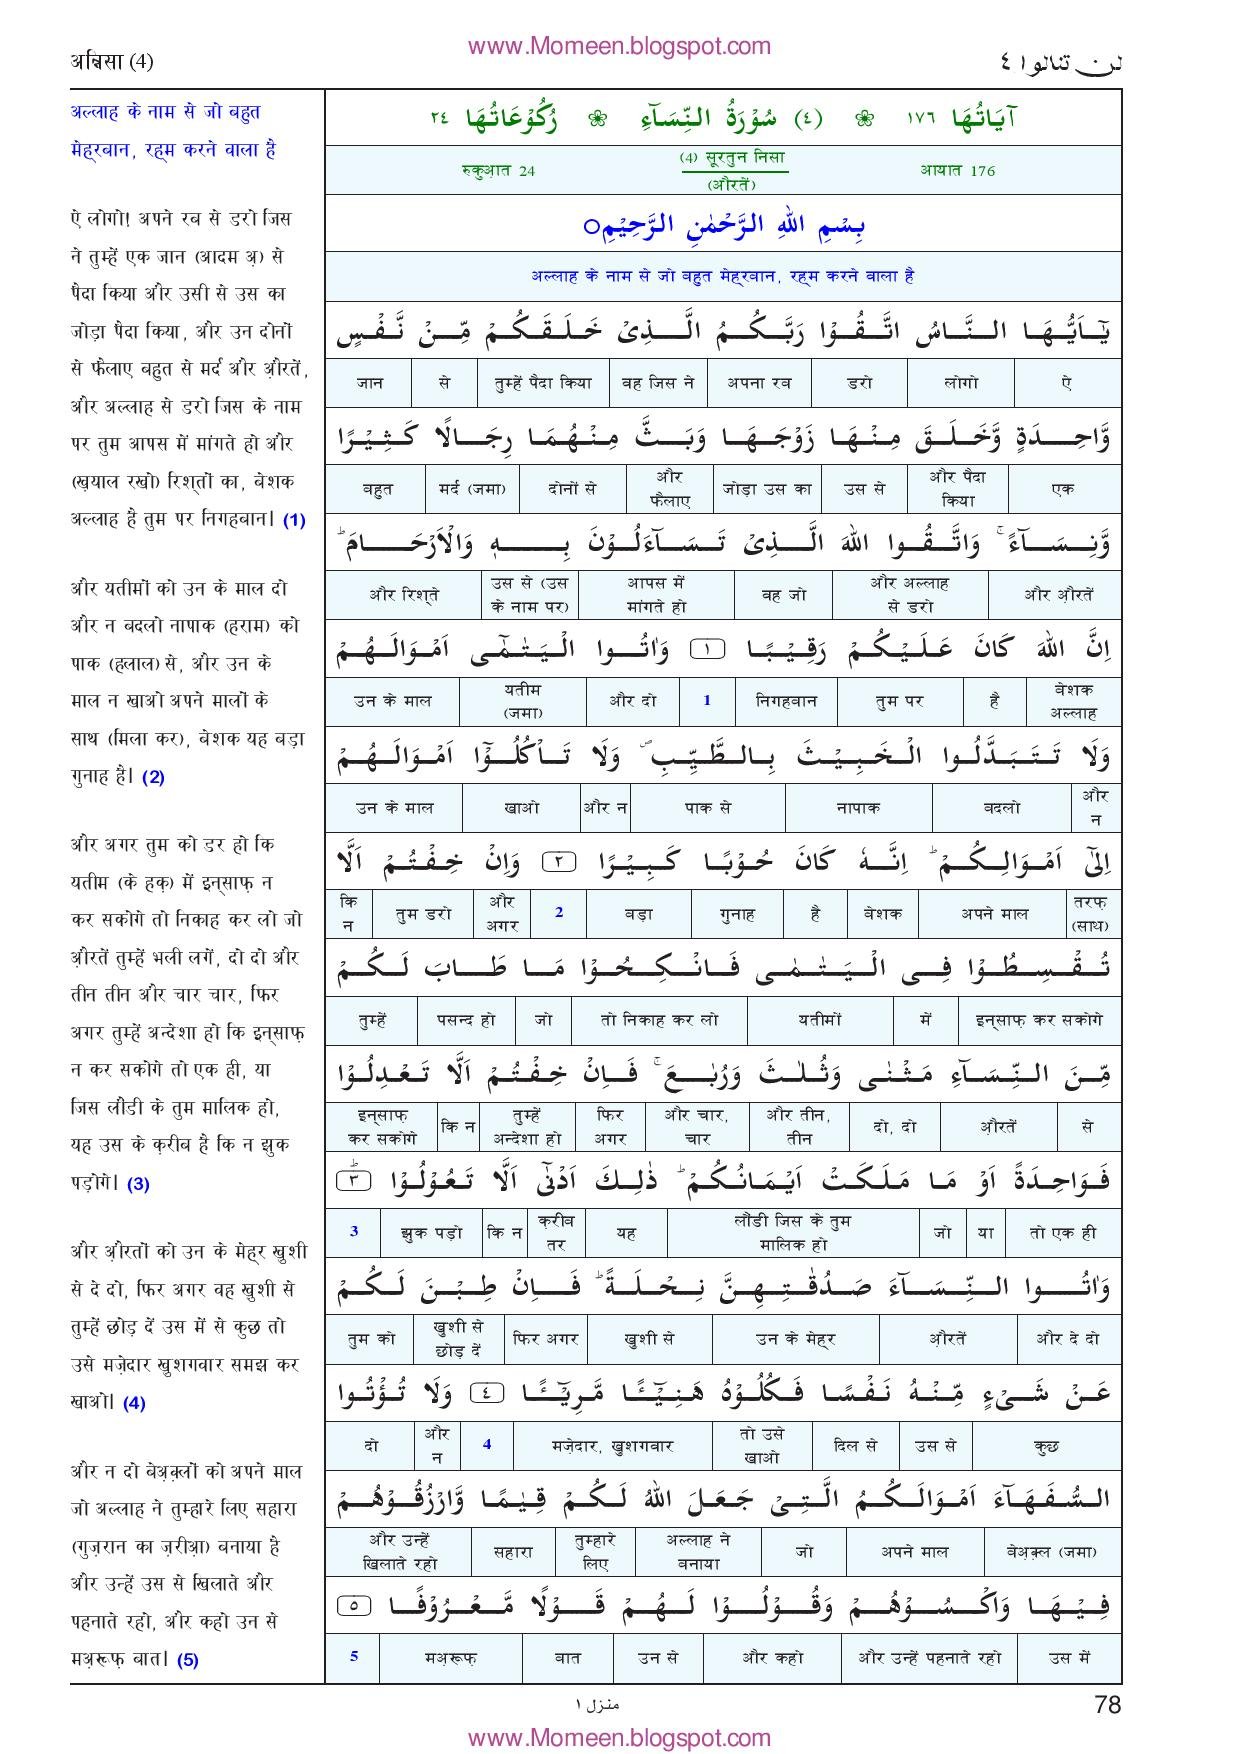 www.Momeen.blogspot.com
अन्निसा (4)
لن تنالوا ٤
अल्लाह के नाम से जो बहुत
मेह्‌रबान, रह्‌म करने वाला है
ऐ लोगो! अपने रब से डरो जिस
ने तुम्हें एक जान (आदम अ़) से
पैदा किया और उसी से उस का
जोड़ा पैदा किया, और उन दोनों
से फैलाए बहुत से मर्द और औ़रतें,
और अल्लाह से डरो जिस के नाम
पर तुम आपस में मांगते हो और
(ख़याल रखो) रिश्‌तों का, बेशक
अल्लाह है तुम पर निगहबान। (1)
और यतीमों को उन के माल दो
और न बदलो नापाक (हराम) को
पाक (हलाल) से, और उन के
माल न खाओ अपने मालों के
साथ (मिला कर), बेशक यह बड़ा
गुनाह है। (2)
और अगर तुम को डर हो कि
यतीम (के हक़) में इन्‌साफ़ न
कर सकोगे तो निकाह कर लो जो
औ़रतें तुम्हें भली लगें, दो दो और
तीन तीन और चार चार, फिर
अगर तुम्हें अन्देशा हो कि इन्‌साफ़
न कर सकोगे तो एक ही, या
जिस लौंडी के तुम मालिक हो,
यह उस के क़रीब है कि न झुक
पड़ोगे। (3)
और औ़रतों को उन के मेह्‌र ख़ुशी
से दे दो, फिर अगर वह ख़ुशी से
तुम्हें छोड़ दें उस में से कुछ तो
उसे मज़ेदार ख़ुशगवार समझ कर
खाओ। (4)
और न दो बेअ़क़्लों को अपने माल
जो अल्लाह ने तुम्हारे लिए सहारा
(गुज़रान का ज़रीआ़) बनाया है
और उन्हें उस से खिलाते और
पहनाते रहो, और कहो उन से
मअ़रूफ़ बात। (5)
آيَاتُهَا ١٧٦ ❀ (٤) سُوْرَةُ النِّسَآءِ ❀ رُكُوْعَاتُهَا ٢٤
रुकुआ़त 24 (4) सूरतुन निसा आयात 176
(औरतें)
بِسْمِ اللهِ الرَّحْمٰنِ الرَّحِيْمِ○
अल्लाह के नाम से जो बहुत मेह्‌रबान, रह्‌म करने वाला है
يٰٓاَيُّهَا النَّاسُ اتَّقُوْا رَبَّكُمُ الَّذِىْ خَلَقَكُمْ مِّنْ نَّفْسٍ
जान से तुम्हें पैदा किया वह जिस ने अपना रब डरो लोगो ऐ
وَّاحِدَةٍ وَّخَلَقَ مِنْهَا زَوْجَهَا وَبَثَّ مِنْهُمَا رِجَالًا كَثِيْرًا
बहुत मर्द (जमा) दोनों से और फैलाए जोड़ा उस का उस से और पैदा किया एक
وَّنِسَآءً ۚ وَاتَّقُوا اللهَ الَّذِىْ تَسَآءَلُوْنَ بِهٖ وَالْاَرْحَامَ ؕ
और रिश्‌ते उस से (उस के नाम पर) आपस में मांगते हो वह जो और अल्लाह से डरो और औ़रतें
اِنَّ اللهَ كَانَ عَلَيْكُمْ رَقِيْبًا ١ وَاٰتُوا الْيَتٰمٰٓى اَمْوَالَهُمْ
उन के माल यतीम (जमा) और दो 1 निगहबान तुम पर है बेशक अल्लाह
وَلَا تَتَبَدَّلُوا الْخَبِيْثَ بِالطَّيِّبِ ۪ وَلَا تَاْكُلُوْٓا اَمْوَالَهُمْ
उन के माल खाओ और न पाक से नापाक बदलो और न
اِلٰٓى اَمْوَالِكُمْ ؕ اِنَّهٗ كَانَ حُوْبًا كَبِيْرًا ٢ وَاِنْ خِفْتُمْ اَلَّا
कि न तुम डरो और अगर 2 बड़ा गुनाह है बेशक अपने माल तरफ़ (साथ)
تُقْسِطُوْا فِى الْيَتٰمٰى فَانْكِحُوْا مَا طَابَ لَكُمْ
तुम्हें पसन्द हो जो तो निकाह कर लो यतीमों में इन्‌साफ़ कर सकोगे
مِّنَ النِّسَآءِ مَثْنٰى وَثُلٰثَ وَرُبٰعَ ۚ فَاِنْ خِفْتُمْ اَلَّا تَعْدِلُوْا
इन्‌साफ़ कर सकोगे कि न तुम्हें अन्देशा हो फिर अगर और चार, चार और तीन, तीन दो, दो औ़रतें से
فَوَاحِدَةً اَوْ مَا مَلَكَتْ اَيْمَانُكُمْ ؕ ذٰلِكَ اَدْنٰٓى اَلَّا تَعُوْلُوْا ؕ ٣
3 झुक पड़ो कि न क़रीब तर यह लौंडी जिस के तुम मालिक हो जो या तो एक ही
وَاٰتُوا النِّسَآءَ صَدُقٰتِهِنَّ نِحْلَةً ؕ فَاِنْ طِبْنَ لَكُمْ
तुम को ख़ुशी से छोड़ दें फिर अगर ख़ुशी से उन के मेह्‌र औ़रतें और दे दो
عَنْ شَىْءٍ مِّنْهُ نَفْسًا فَكُلُوْهُ هَنِيْٓـًٔا مَّرِيْٓـًٔا ٤ وَلَا تُؤْتُوا
दो और न 4 मज़ेदार, ख़ुशगवार तो उसे खाओ दिल से उस से कुछ
السُّفَهَآءَ اَمْوَالَكُمُ الَّتِىْ جَعَلَ اللهُ لَكُمْ قِيٰمًا وَّارْزُقُوْهُمْ
और उन्हें खिलाते रहो सहारा तुम्हारे लिए अल्लाह ने बनाया जो अपने माल बेअ़क़्ल (जमा)
فِيْهَا وَاكْسُوْهُمْ وَقُوْلُوْا لَهُمْ قَوْلًا مَّعْرُوْفًا ٥
5 मअ़रूफ़ बात उन से और कहो और उन्हें पहनाते रहो उस में
منزل ١
78
www.Momeen.blogspot.com